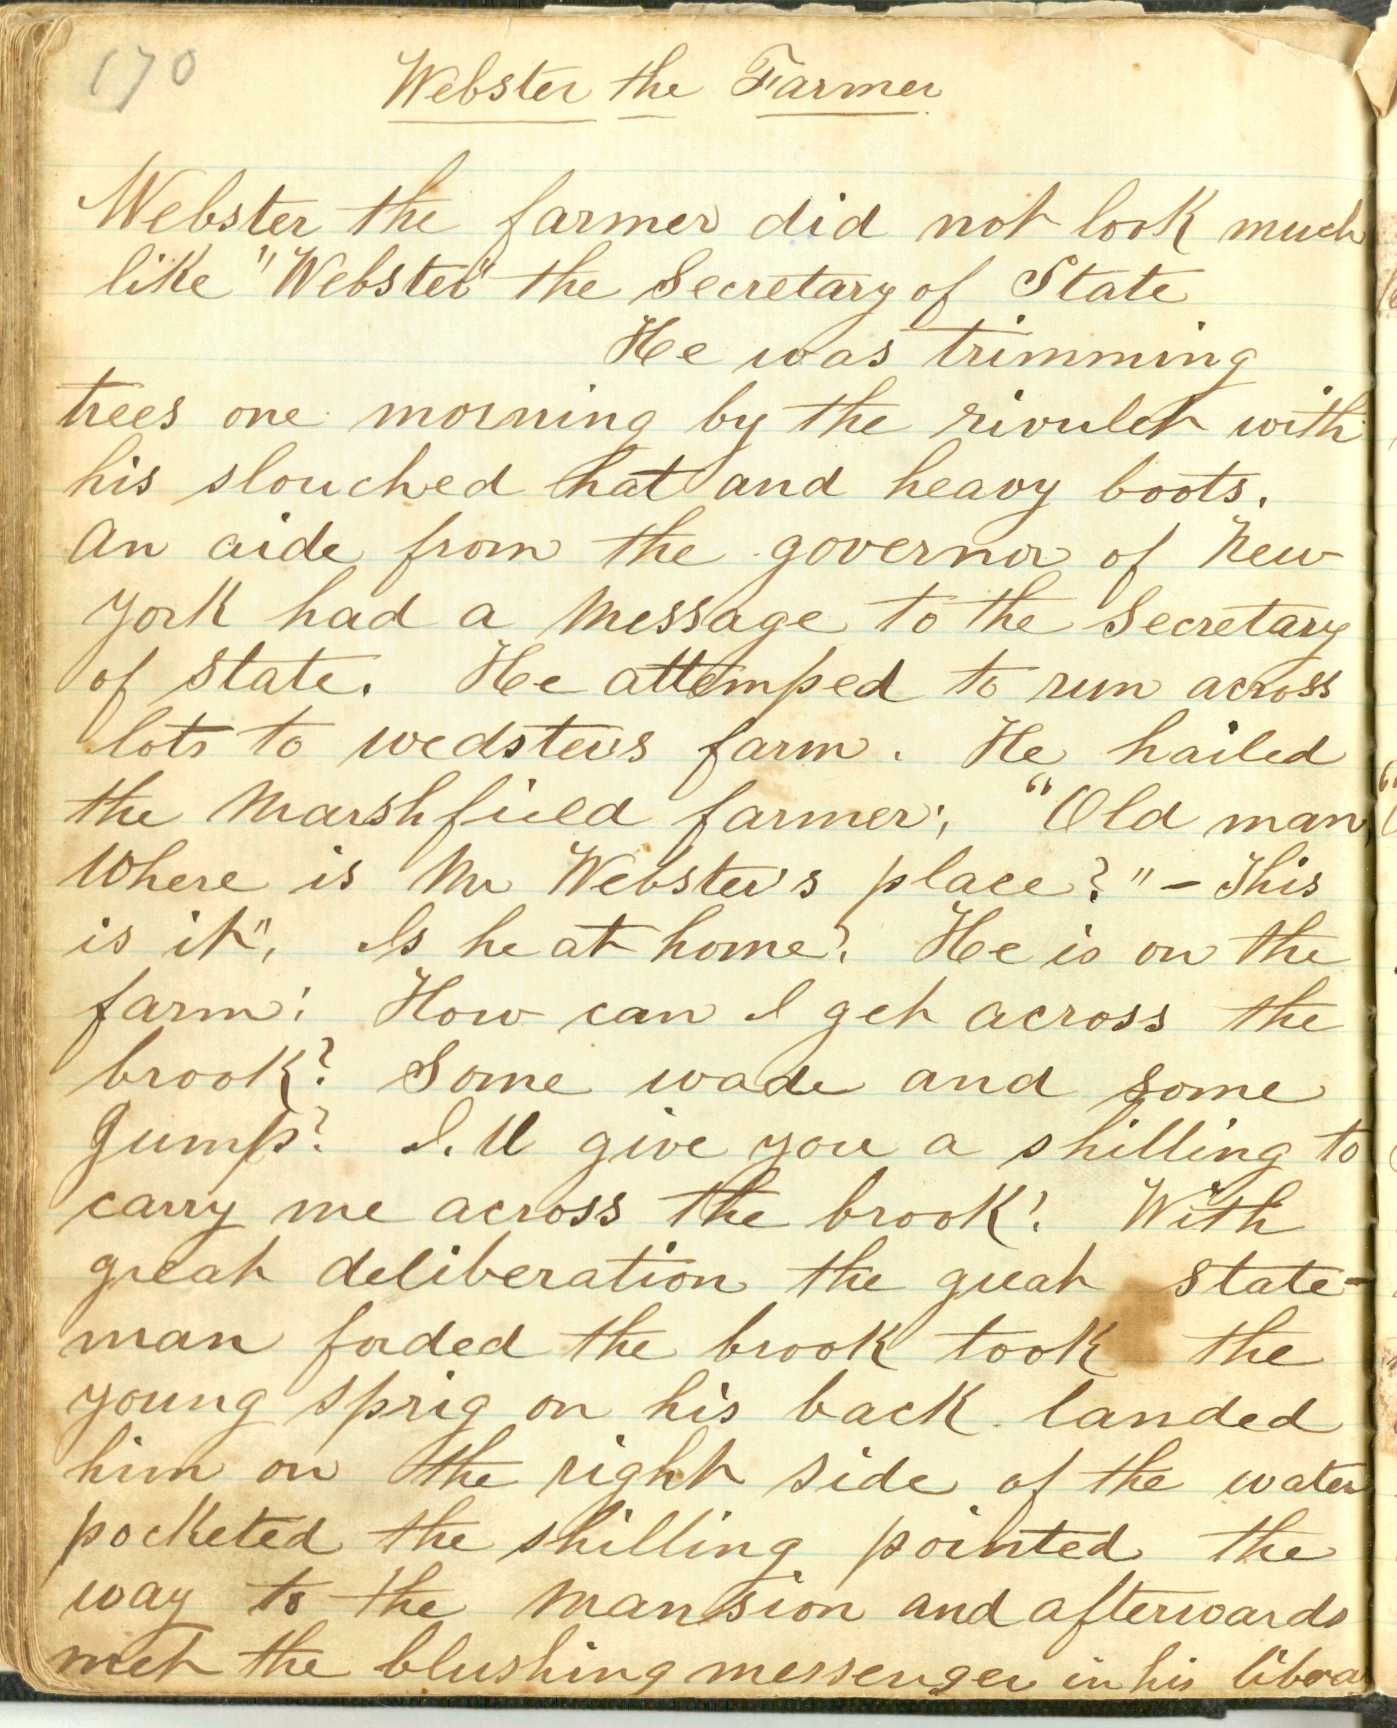 170
Webster the Farmer
Webster the farmer did not look much
like "Webster" the Secretary of State
He was trimming
trees one morning by the rivulet with
his slouched hat and heavy boots.
An aide from the governor of New
York had a message to the Secretary
of State. He attemped to run across
lots to wedsters farm. He hailed
the Marshfield farmer; "Old man,
Where is Mr Webster's place?" - This
is it", Is he at home? He is on the
farm! How can I get across the
brook? Some wade and some
Jump? I.ll give you a shilling to
carry me across the brook! With
great deliberation the great state-
man forded the brook took the
young sprig on his back landed
him on the right side of the water
pocketed the shilling pointed the
way to the mansion and afterwards
met the blushing messenger in his libra